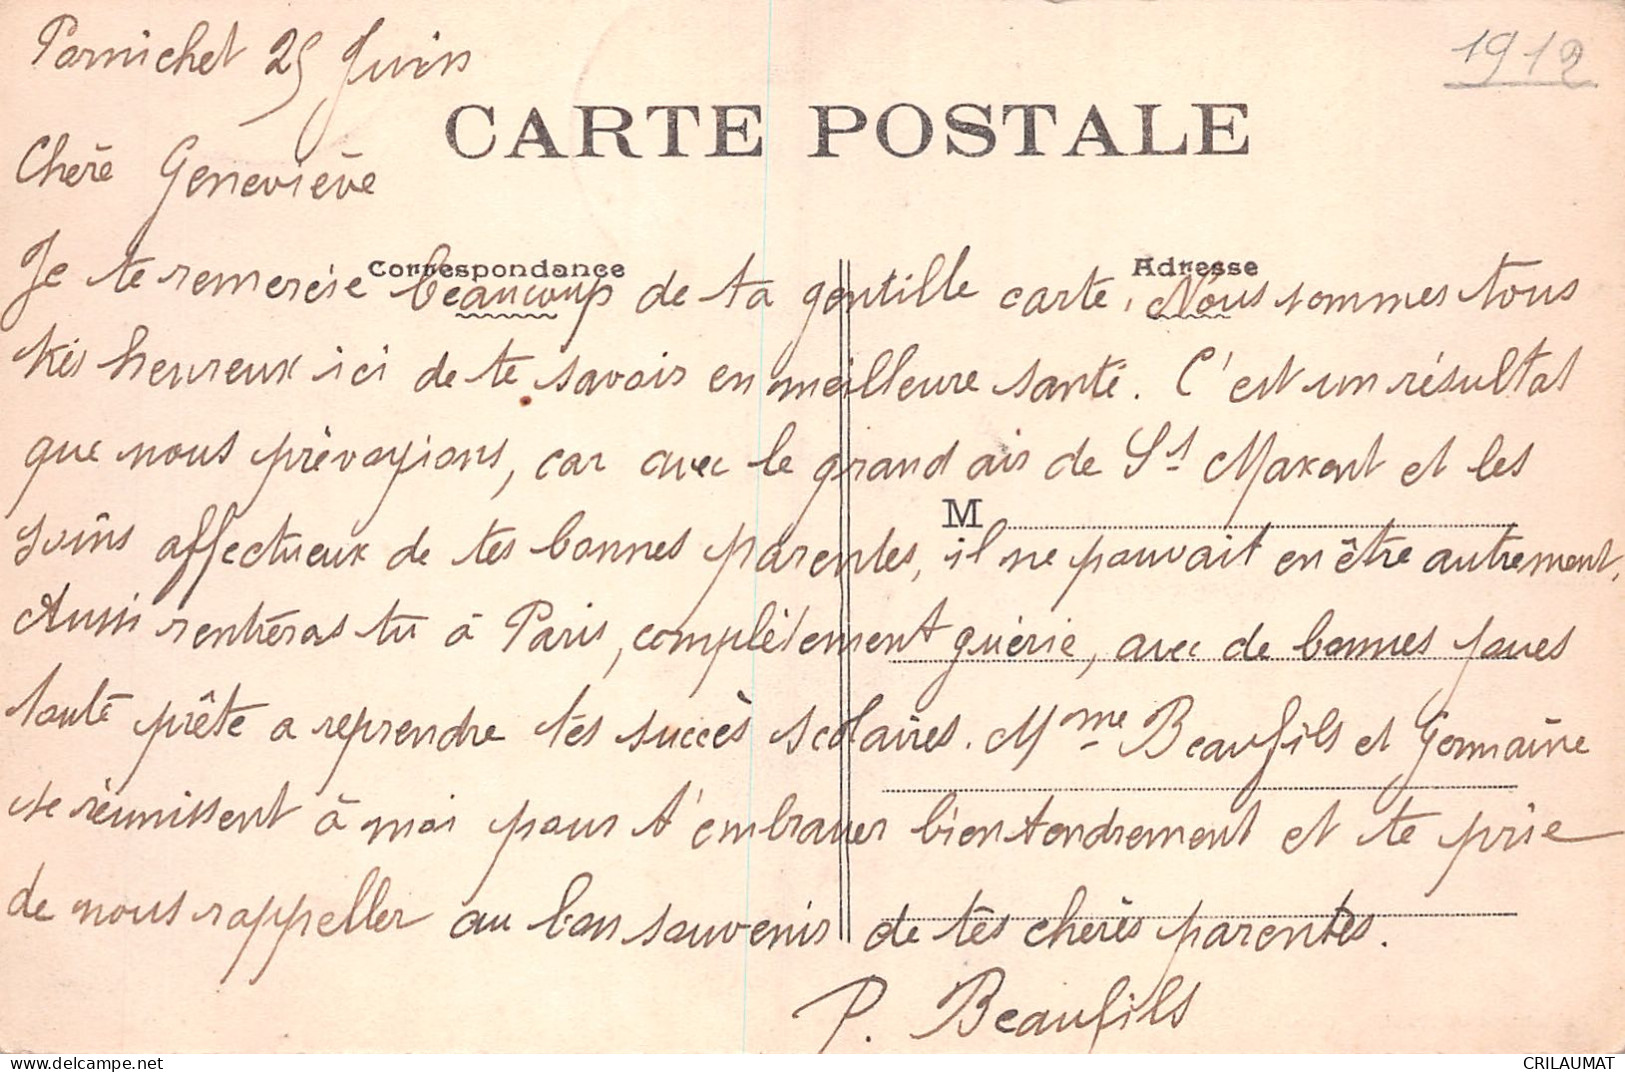 Pornichet 25 Juin
1912
CARTE POSTALE
Chère Geneviève
Correspondance
Adresse
Je te remercie beaucoup de ta gentille carte. Nous sommes tous
très heureux ici de te savoir en meilleure santé. C'est un résultat
que nous prévoyions, car avec le grand air de St Maxent et les
M
soins affectueux de tes bonnes parentes, il ne pouvait en être autrement.
Aussi rentreras tu à Paris, complètement guérie, avec de bonnes joues
toute prête a reprendre tes succès scolaires. Mme Beaufils et Germaine
se réunissent à moi pour t'embrasser bien tendrement et te prie
de nous rappeller au bon souvenir de tes chères parentes.
P. Beaufils
delcampe.net
CRILAUMAT